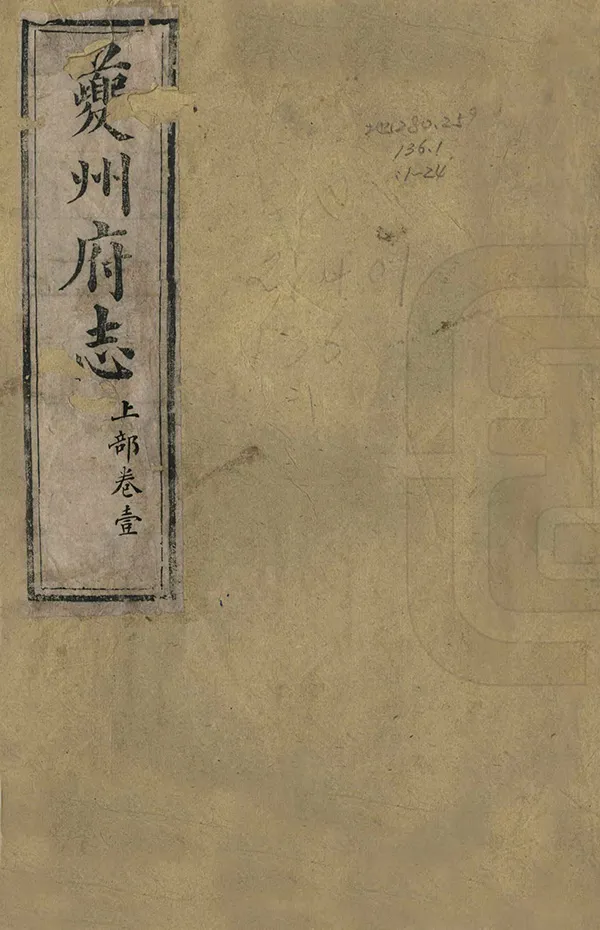 夔州府志
上部卷壹
280.25
136.1
:1-24